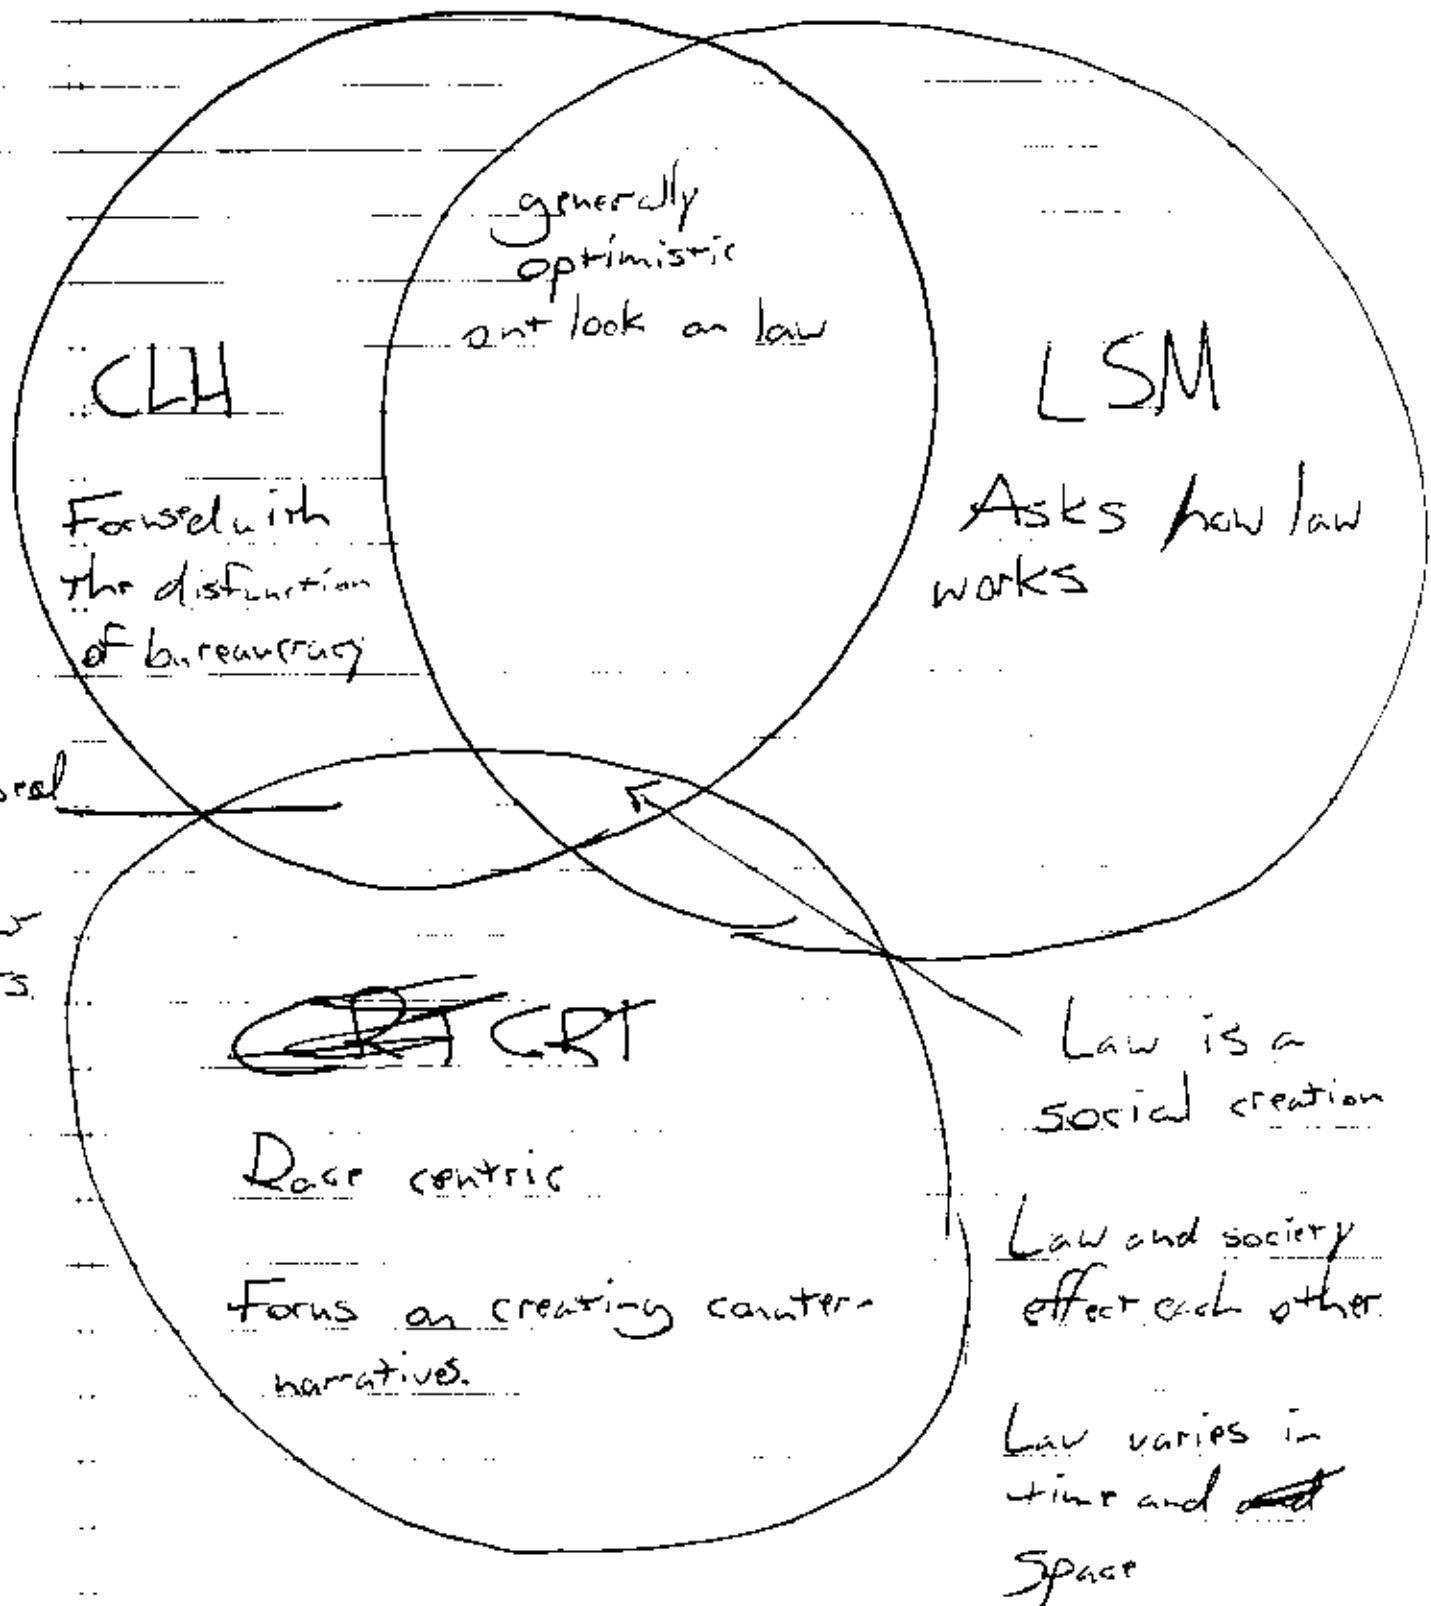 generally
optimistic
out look on law
CLH
LSM
Focused with
the disfunction
of bureaucracy
Asks how law
works
CRT
Race centric
Focus on creating counter-
narratives.
Law is a
social creation
Law and society
effect each other.
Law varies in
time and
Space